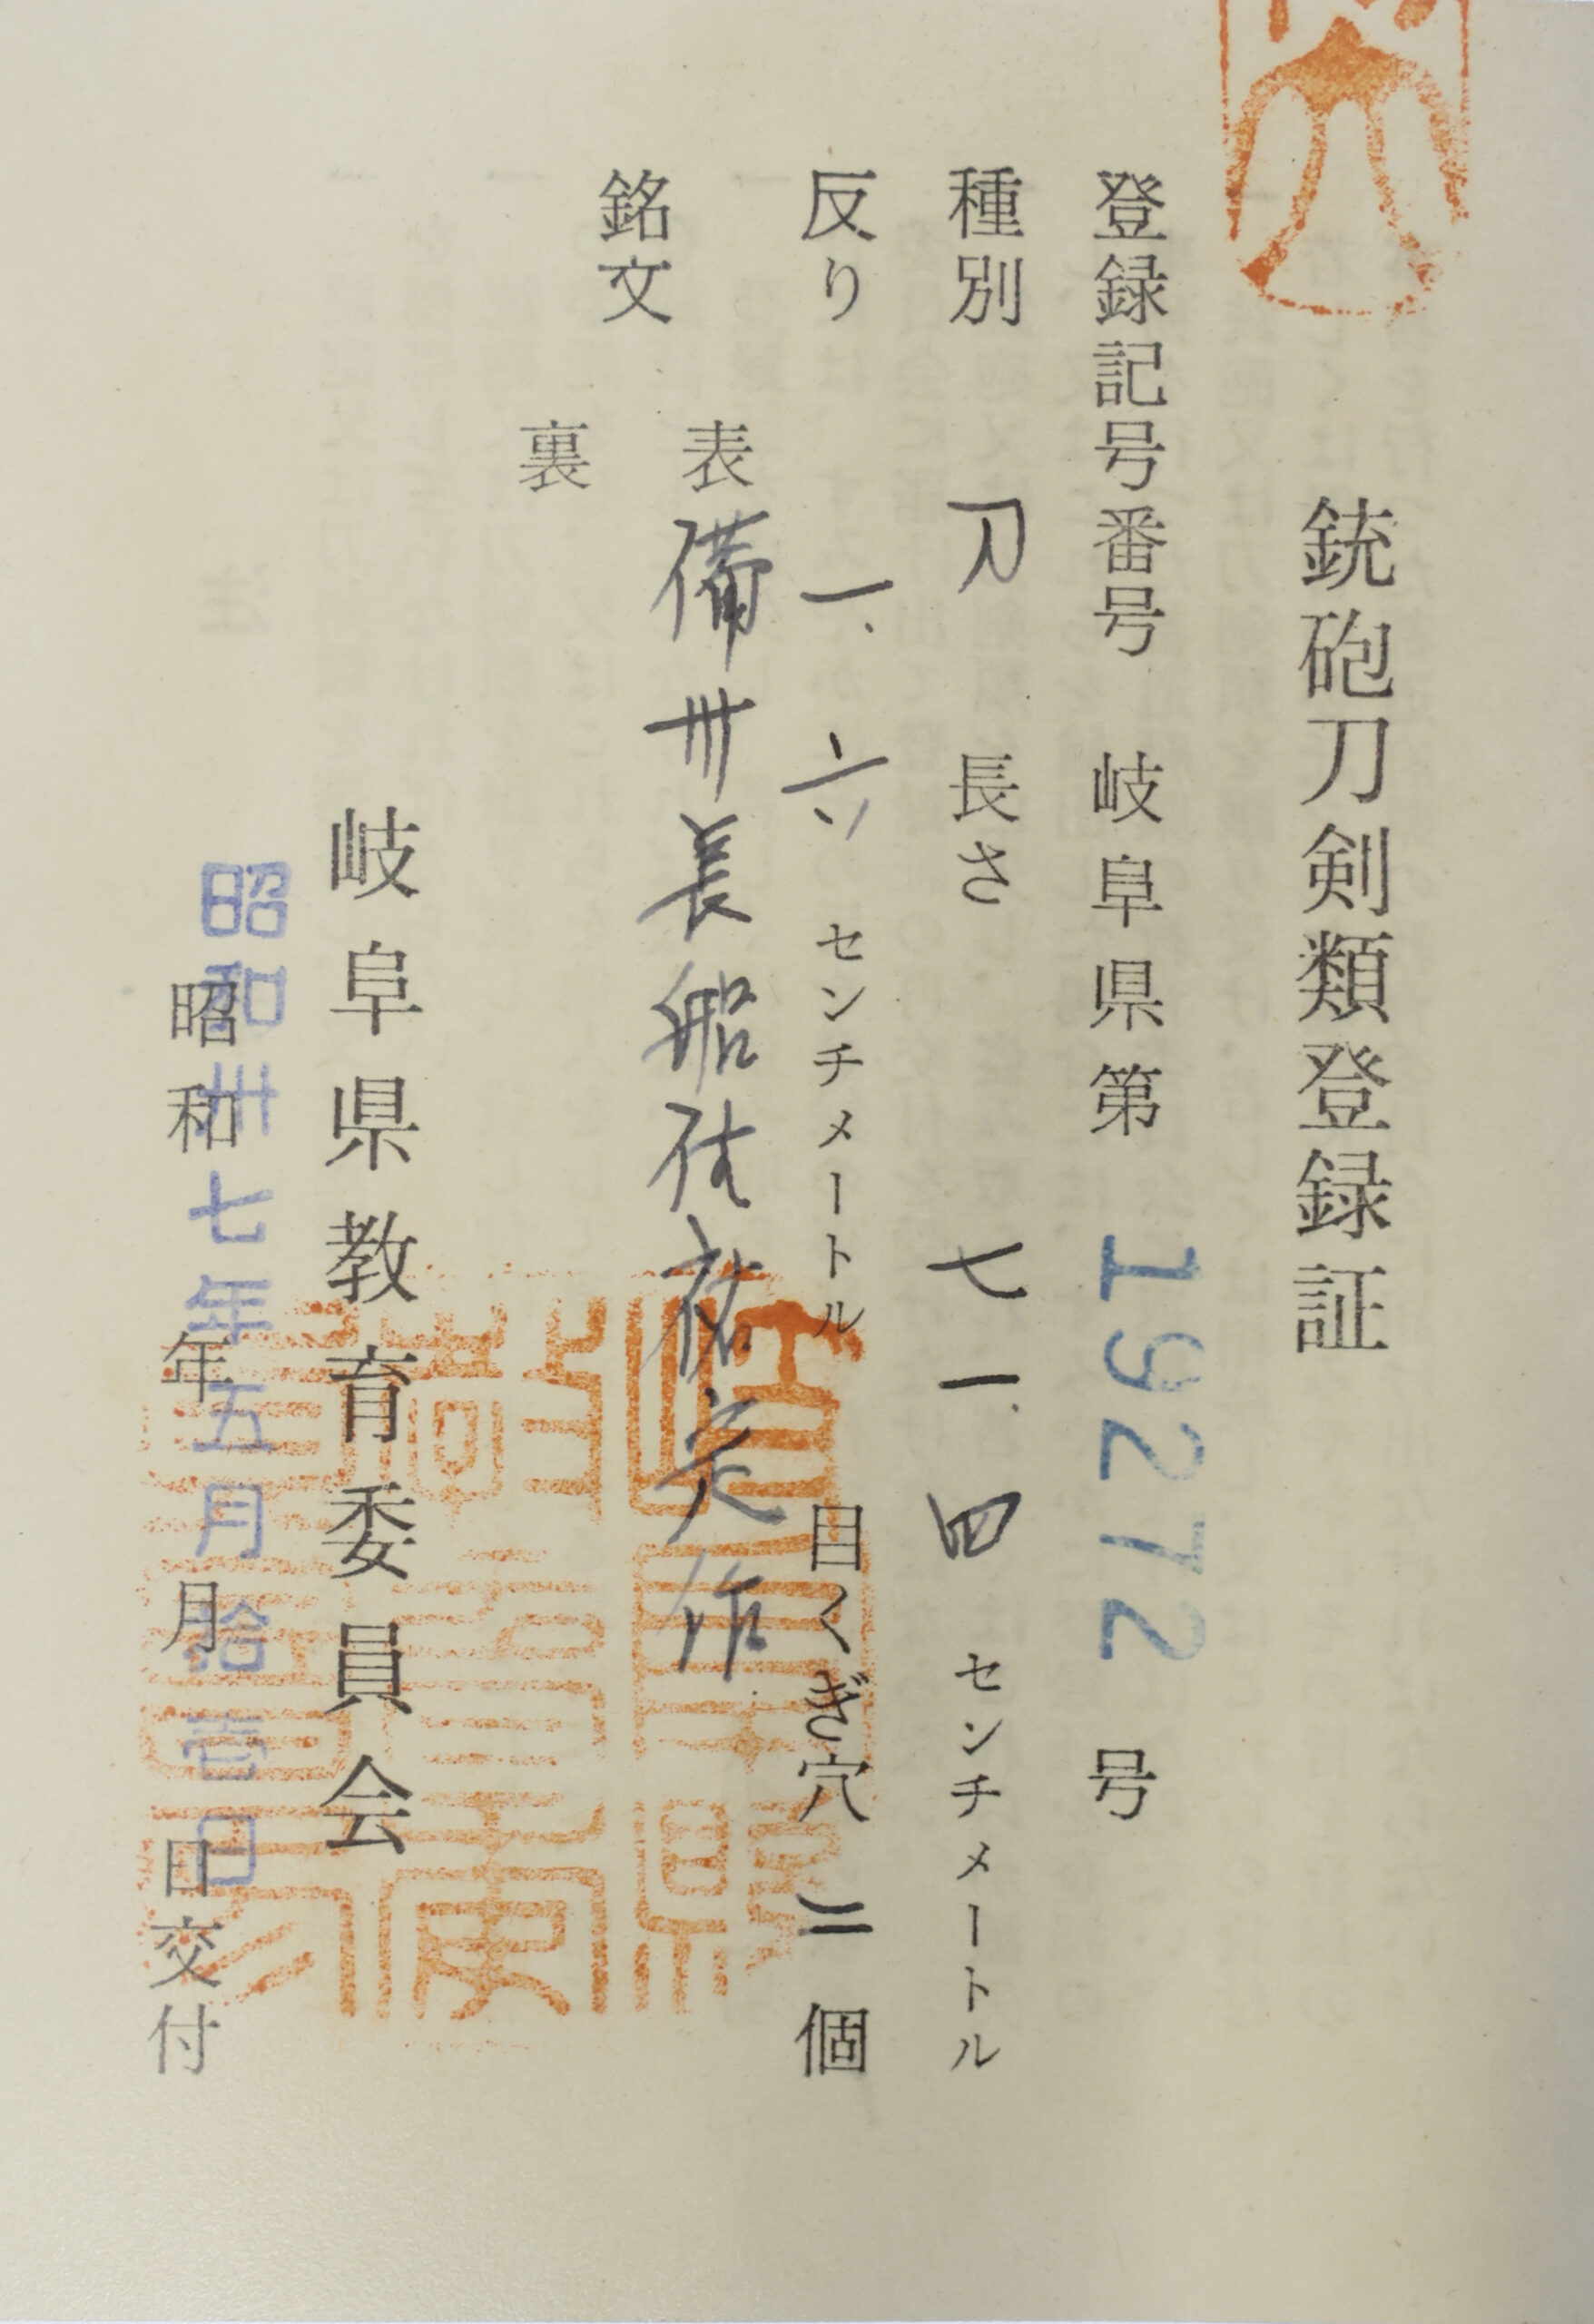 銃砲刀剣類登録証
登録記号番号 岐阜県第 19272 号
種別 刀 長さ 七一.四 センチメートル
反り 一.六 センチメートル 目くぎ穴 二 個
銘文 表 備州長船住祐定作
裏
岐阜県教育委員会
昭和卅七年五月拾壱日
昭和 年 月 日交付